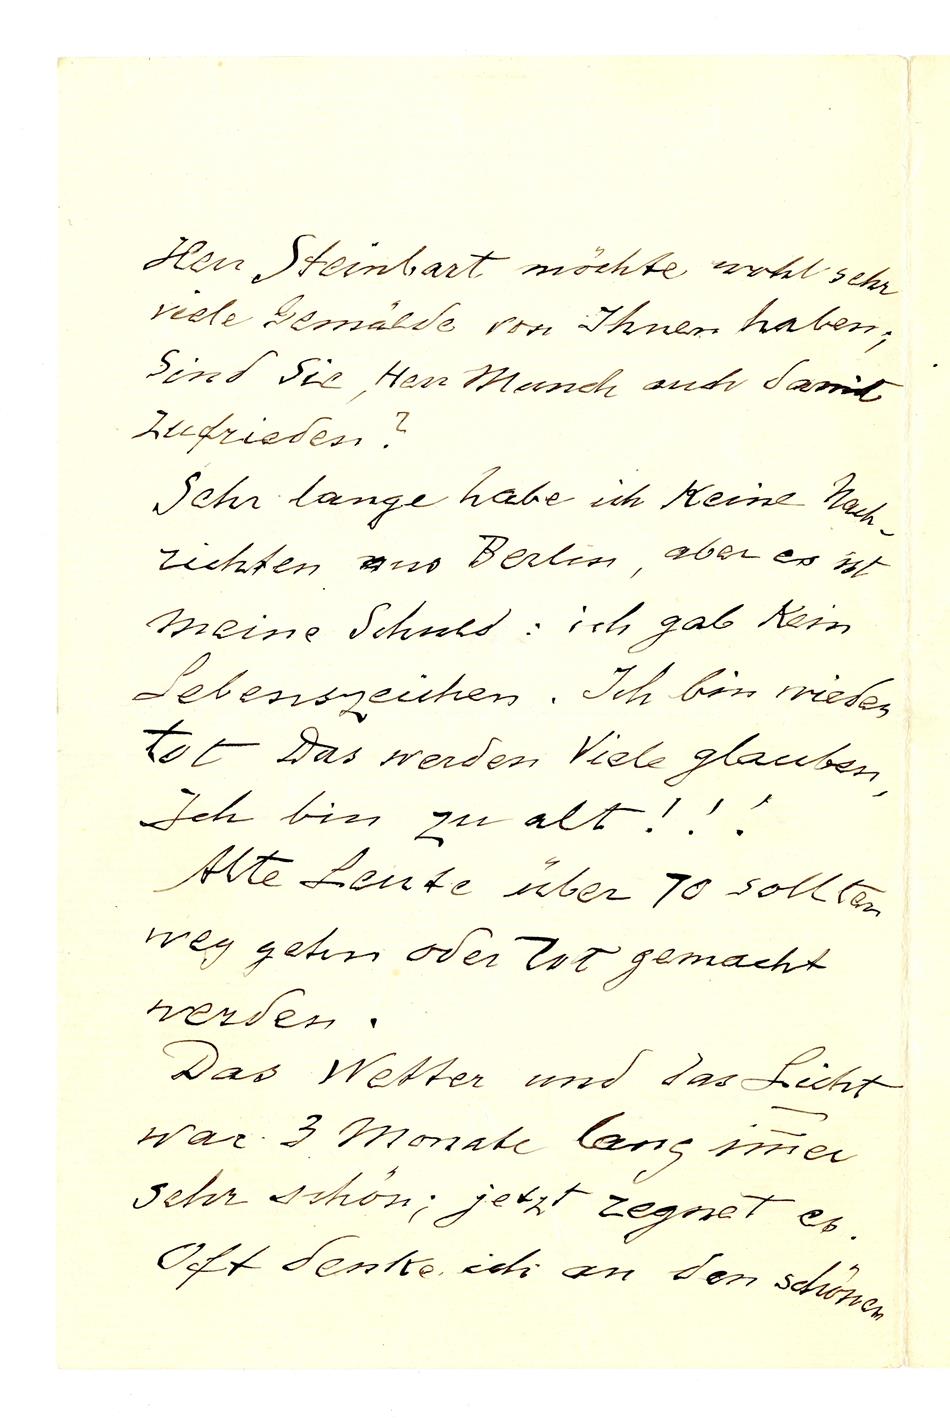 Herr Steinbart möchte wohl sehr
viele Gemälde von Ihnen haben;
Sind Sie, Herr Munch auch damit
zufrieden?
Sehr lange habe ich Keine Nach-
richten aus Berlin, aber es ist
meine Schuld: ich gab Kein
Lebenszeichen. Ich bin wieder
tot Das werden Viele glauben,
Ich bin zu alt!!!
Alte Leute über 70 sollten
weg gehn oder Tot gemacht
werden.
Das Wetter und das Licht
war 3 Monate lang im̅er
sehr schön; jetzt regnet es.
Oft denke ich an den schönen